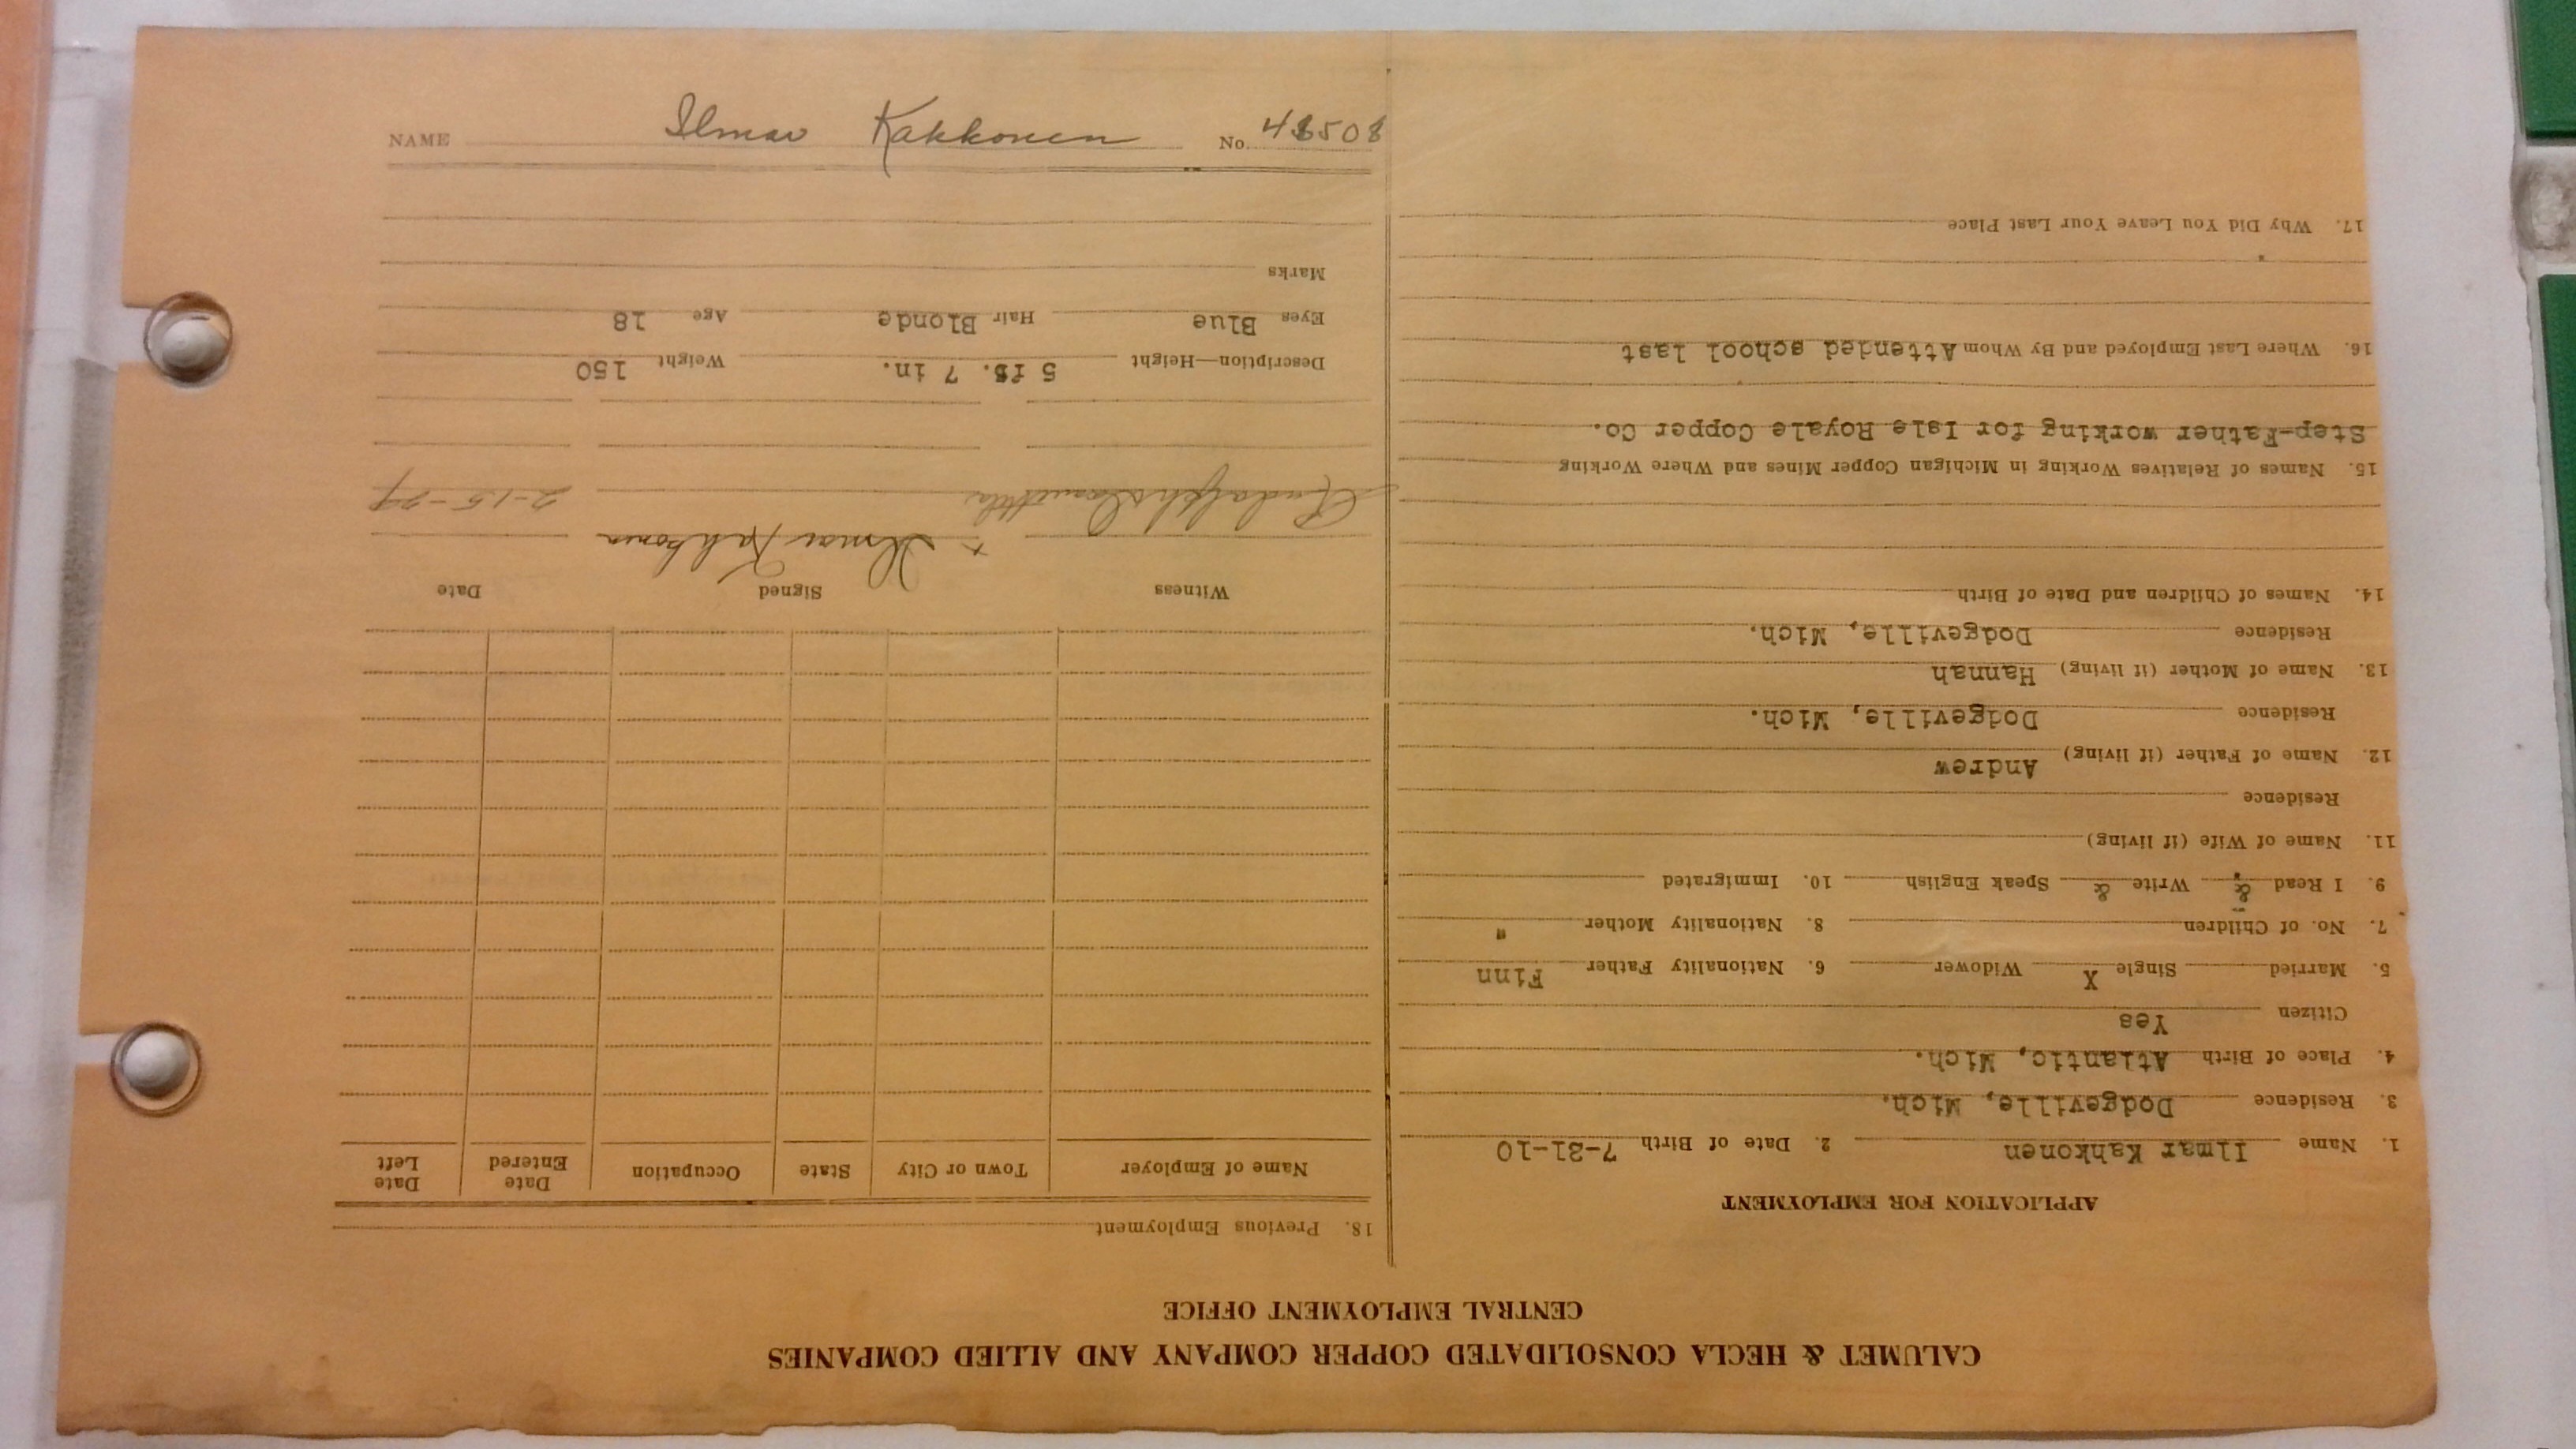 CALUMET & HECLA CONSOLIDATED COPPER COMPANY AND ALLIED COMPANIES
CENTRAL EMPLOYMENT OFFICE
APPLICATION FOR EMPLOYMENT
1. Name Ilmar Kahkonen 2. Date of Birth 7-31-10
3. Residence Dodgeville, Mich.
4. Place of Birth Atlantic, Mich.
Citizen Yes
5. Married Single X Widower 6. Nationality Father Finn
7. No. of Children 8. Nationality Mother "
9. I Read & Write & Speak English 10. Immigrated
11. Name of Wife (if living)
Residence
12. Name of Father (if living) Andrew
Residence Dodgeville, Mich.
13. Name of Mother (if living) Hannah
Residence Dodgeville, Mich.
14. Names of Children and Date of Birth
15. Names of Relatives Working in Michigan Copper Mines and Where Working
Step-Father working for Isle Royale Copper Co.
16. Where Last Employed and By Whom Attended school last
17. Why Did You Leave Your Last Place
18. Previous Employment
Name of Employer Town or City State Occupation Date Entered Date Left
Witness Signed Date
x Ilmar Kahkonen
2-15-29
Description—Height 5 ft. 7 in. Weight 150
Eyes Blue Hair Blonde Age 18
Marks
NAME Ilmar Kahkonen No. 48508